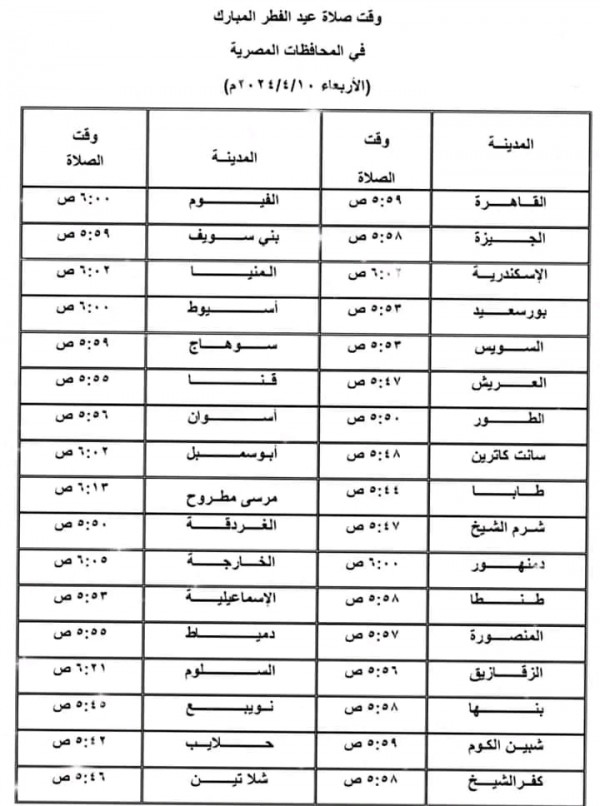 وقت صلاة عيد الفطر المبارك
في المحافظات المصرية
(الأربعاء ٢٠٢٤/٤/١٠م)
المدينة وقت الصلاة المدينة وقت الصلاة
القاهرة ٥:٥٩ ص الفيوم ٦:٠٠ ص
الجيزة ٥:٥٨ ص بني سويف ٥:٥٩ ص
الإسكندرية ص المنيا ٦:٠٢ ص
بورسعيد ٥:٥٣ ص أسيوط ٦:٠٠ ص
السويس ٥:٥٣ ص سوهاج ٥:٥٩ ص
العريش ٥:٤٧ ص قنا ٥:٥٥ ص
الطور ٥:٥٠ ص أسوان ٥:٥٦ ص
سانت كاترين ٥:٤٨ ص أبوسمبل ٦:٠٢ ص
طابا ٥:٤٤ ص مرسى مطروح ٦:١٣ ص
شرم الشيخ ٥:٤٧ ص الغردقة ٥:٥٠ ص
دمنهور ٦:٠٠ ص الخارجة ٦:٠٥ ص
طنطا ٥:٥٨ ص الإسماعيلية ٥:٥٣ ص
المنصورة ٥:٥٧ ص دمياط ٥:٥٥ ص
الزقازيق ٥:٥٦ ص السلوم ٦:٢١ ص
بنها ٥:٥٨ ص نويبع ٥:٤٥ ص
شبين الكوم ٥:٥٩ ص حلايب ٥:٤٢ ص
كفر الشيخ ٥:٥٨ ص شلاتين ٥:٤٦ ص